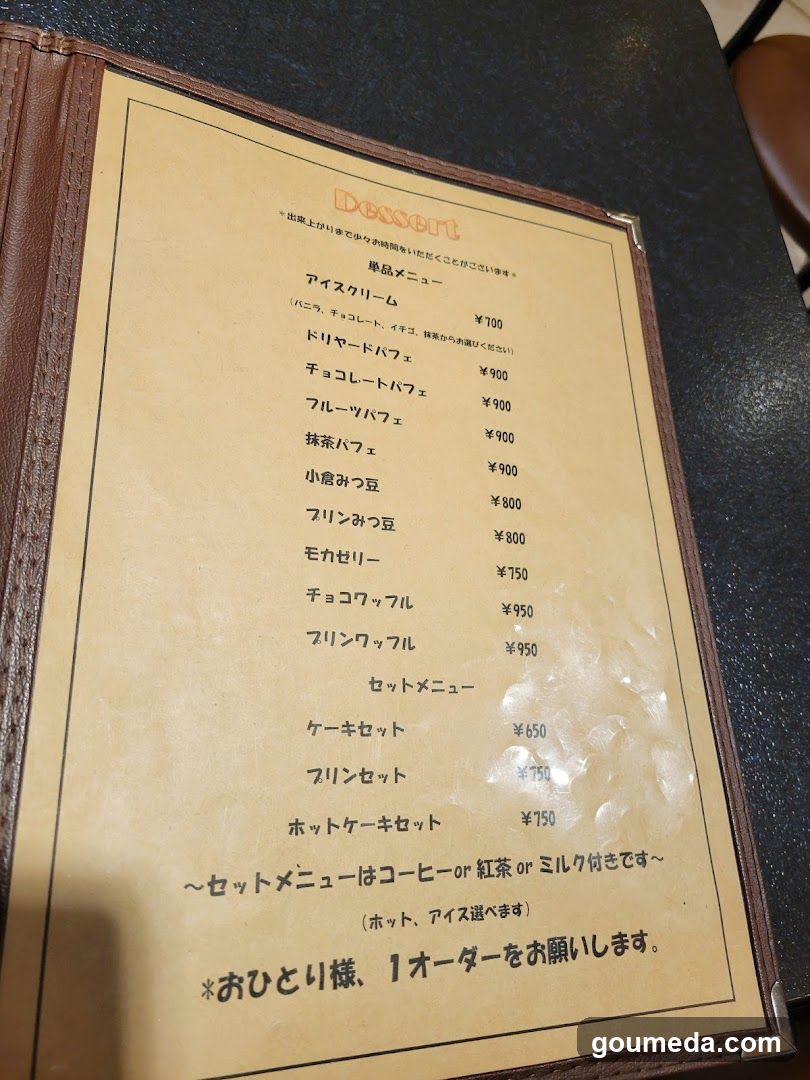 Dessert
*出来上がりまで少々お時間をいただくことがございます*
単品メニュー
アイスクリーム ¥700
(バニラ、チョコレート、イチゴ、抹茶からお選びください)
ドリヤードパフェ ¥900
チョコレートパフェ ¥900
フルーツパフェ ¥900
抹茶パフェ ¥900
小倉みつ豆 ¥800
プリンみつ豆 ¥800
モカゼリー ¥750
チョコワッフル ¥950
プリンワッフル ¥950
セットメニュー
ケーキセット ¥650
プリンセット ¥750
ホットケーキセット ¥750
～セットメニューはコーヒーor 紅茶 or ミルク付きです～
(ホット、アイス選べます)
*おひとり様、1オーダーをお願いします。
goumeda.com